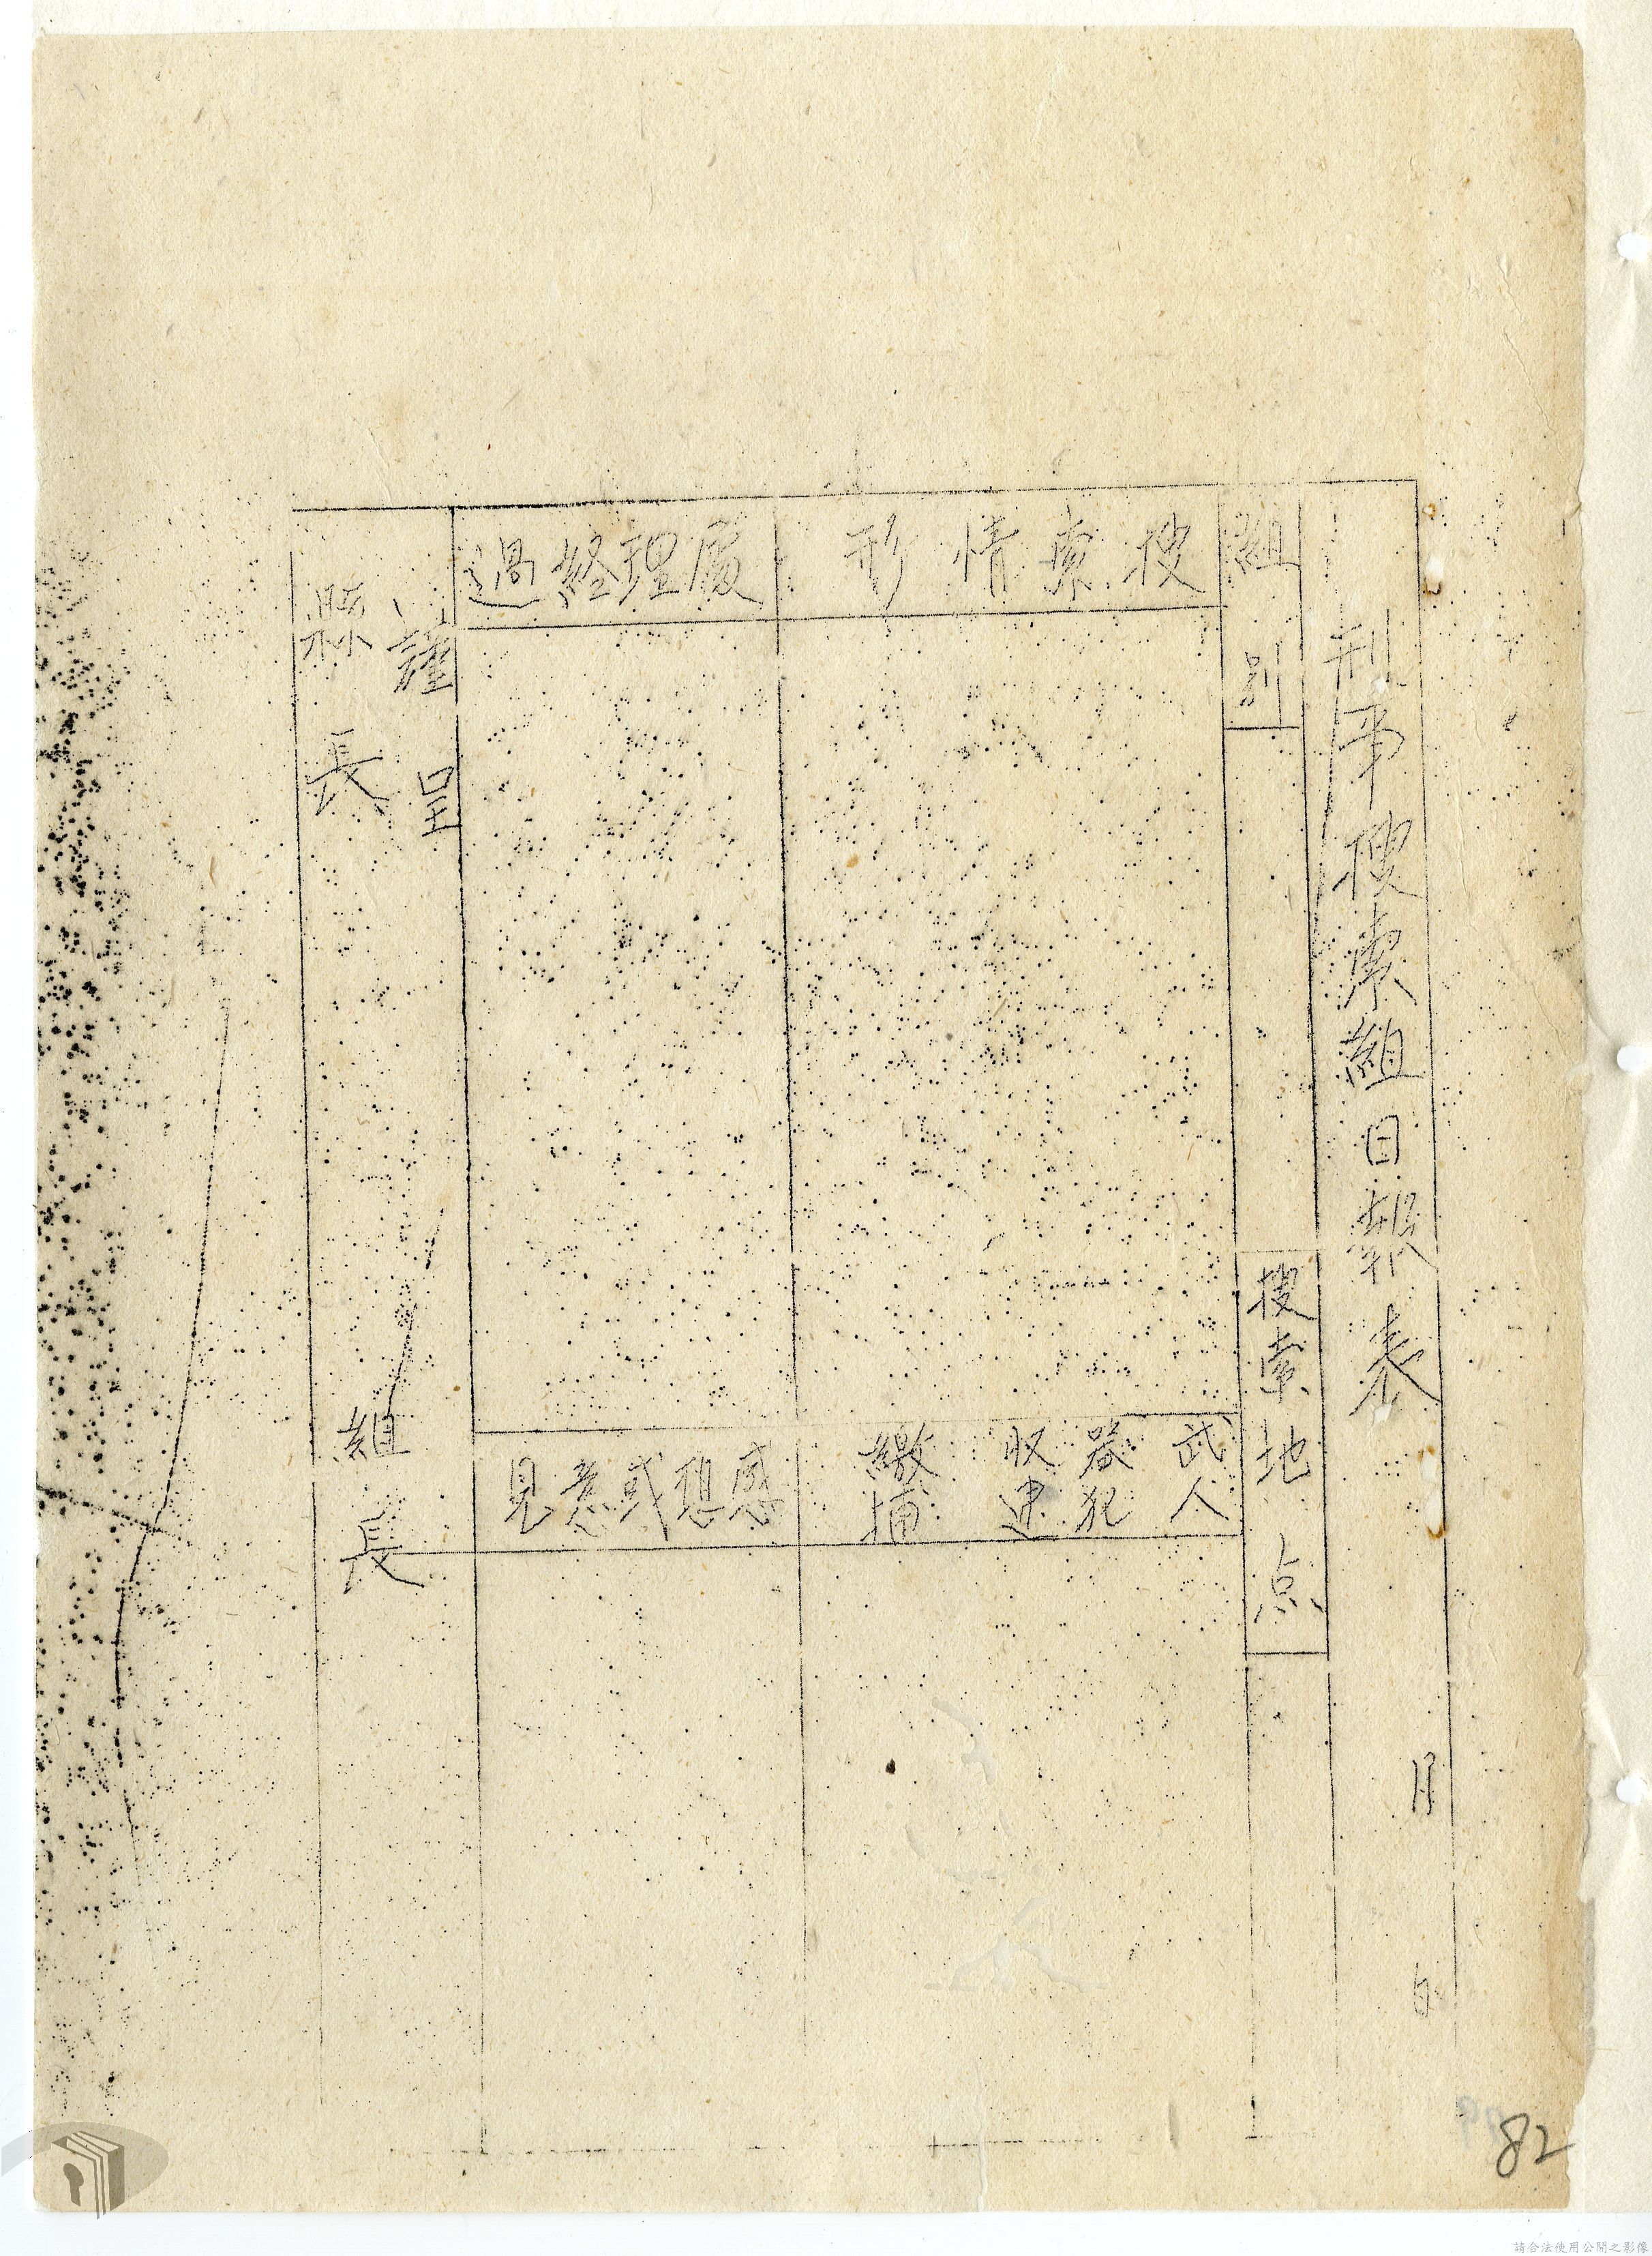 刑事搜索組日報表
月 日
組別
搜索地点
搜索情形
武器收繳
人犯逮捕
處理経過
感想或意見
謹呈
縣長
組長
82
請合法使用公開之影像